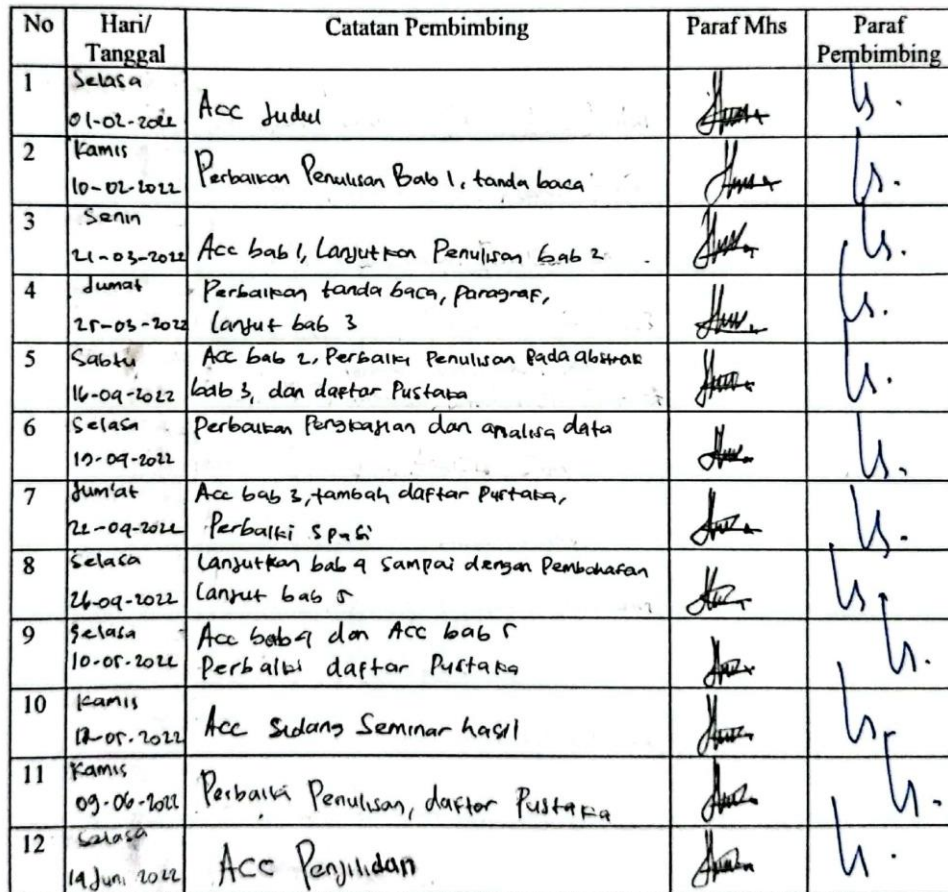 No Hari/ Tanggal Catatan Pembimbing Paraf Mhs Paraf Pembimbing
1 Selasa
01-02-2022 Acc Judul
2 Kamis
10-02-2022 Perbaikan Penulisan Bab 1, tanda baca
3 Senin
21-03-2022 Acc bab 1, Lanjutkan Penulisan bab 2
4 Jumat Perbaikan tanda baca, paragraf,
25-03-2022 Lanjut bab 3
5 Sabtu Acc bab 2, Perbaiki Penulisan Pada abstrak
16-04-2022 bab 3, dan daftar Pustaka
6 Selasa Perbaikan Pengkajian dan analisa data
19-04-2022
7 Jum'at Acc bab 3, tambah daftar Pustaka,
22-04-2022 Perbaiki Spasi
8 Selasa Lanjutkan bab 4 Sampai dengan Pembahasan
26-04-2022 Lanjut bab 5
9 Selasa Acc bab 4 dan Acc bab 5
10-05-2022 Perbaiki daftar Pustaka
10 Kamis
12-05-2022 Acc Sidang Seminar hasil
11 Kamis
09-06-2022 Perbaiki Penulisan, daftar Pustaka
12 Selasa
14 Juni 2022 Acc Penjilidan